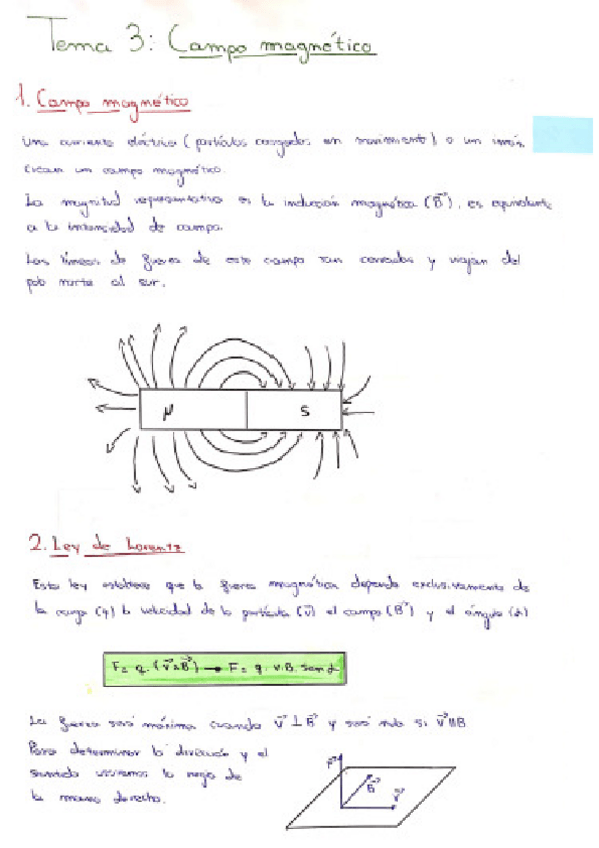 Tema 3: Campo magnético
1. Campo magnético
Una corriente eléctrica (partículas cargadas en movimiento) o un imán
crean un campo magnético.
La magnitud representativa es la inducción magnética (B⃗), es equivalente
a la intensidad de campo.
Las líneas de fuerza de este campo son cerradas y viajan del
polo norte al sur.
N S
2. Ley de Lorentz
Esta ley establece que la fuerza magnética depende exclusivamente de
la carga (q) la velocidad de la partícula (v⃗) el campo (B⃗) y el ángulo (α)
F = q · (v⃗ x B⃗) → F = q · v · B · sen α
La fuerza será máxima cuando v⃗ ⊥ B⃗ y será nula si v⃗ || B
Para determinar la dirección y el
sentido usaremos la regla de
la mano derecha.
F⃗
B⃗
v⃗